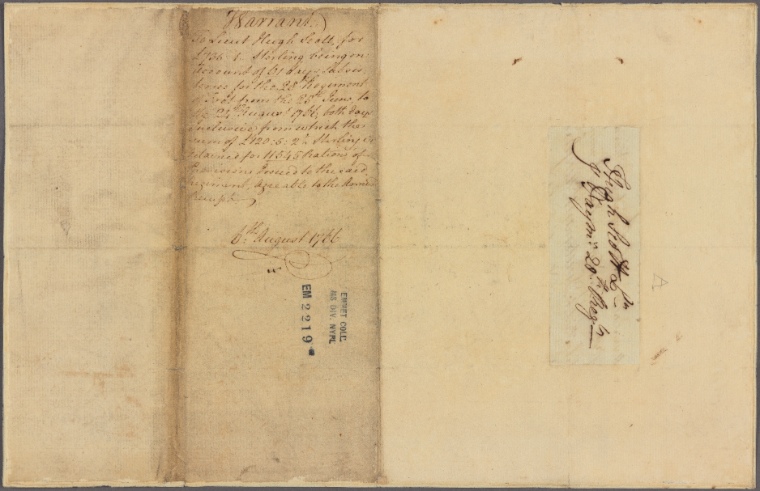 Warrant
To Lieut Hugh Scott, for
£736..4.. Sterling being on
Account of 61 days Subsis
tence for the 28th Regiment
of Foot from the 25th June to
the 24th August 1766, both days
Inclusive, from which the
sum of £120..5..2¼ Sterling is
retained for 11545 Rations of
Provisions Issued to the said
Regiment, agreeable to the
Receipt
6th August 1766
EMMET COLL.
MS DIV. NYPL
EM 2219
Hugh Scott Lt
Paymr 28th Regt
A